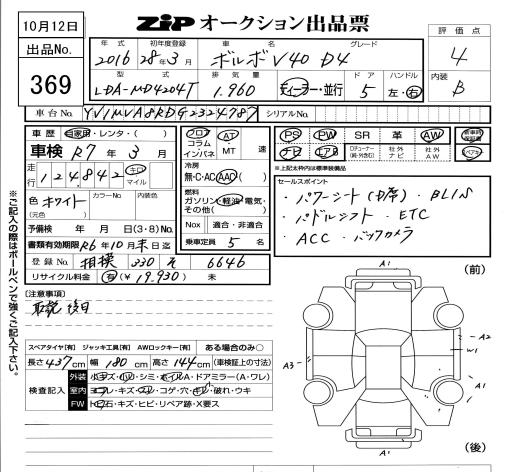 10月12日
ZiP オークション出品票
出品No.
369
評価点
4
内装
B
年式 初年度登録 車名 グレード
2016 28年3月 ボルボV40 D4
型式 排気量 ドア ハンドル
LDA-MD4204T 1.960 ディーラー・並行 5 左・右
車台No. YV1MVA8RDG2324787 シリアルNo.
車歴 自家用・レンタ・( )
車検 R7年3月
走行 124,842 キロ マイル
色 ホワイト カラーNo. 内装色
(元色)
予備検 年 月 日(3・8)No.
書類有効期限 R6年10月末日迄
登録No. 相模 330 6646
リサイクル料金 有(¥19,930) 未
フロア
コラム
インパネ
AT
MT 速
冷房
無・C・AC・AAC( )
燃料
ガソリン・軽油・電気・
その他( )
Nox 適合・非適合
乗車定員 5 名
PS PW SR 革 AW 新車時保証書
ナビ エアB TVチューナー(純・外含む) 社外ナビ 社外AW スペアキー
※上記太枠内は標準装備品
セールスポイント
・パワーシート(D席)・BLIS
・パドルシフト・ETC
・ACC・バックカメラ
[注意事項]
取説 後日
スペアタイヤ[有] ジャッキ工具[有] AWロックキー[有] ある場合のみ○
長さ 437 cm 幅 180 cm 高さ 144 cm (車検証上の寸法)
検査記入
外装 小キズ・小凹・シミ・ホイルA・ドアミラー(A・ワレ)
室内 ヨゴレ・キズ・スレ・コゲ・穴・キレ・破れ・ウキ
FW トビ石・キズ・ヒビ・リペア跡・X要ス
※ご記入の際はボールペンで強くご記入下さい。
(前)
A1
A2
W1
A3
A1
A1
(後)